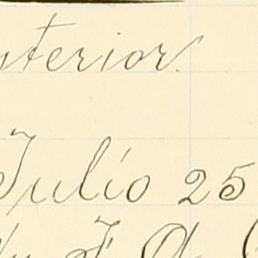 nterior.
Julio 25